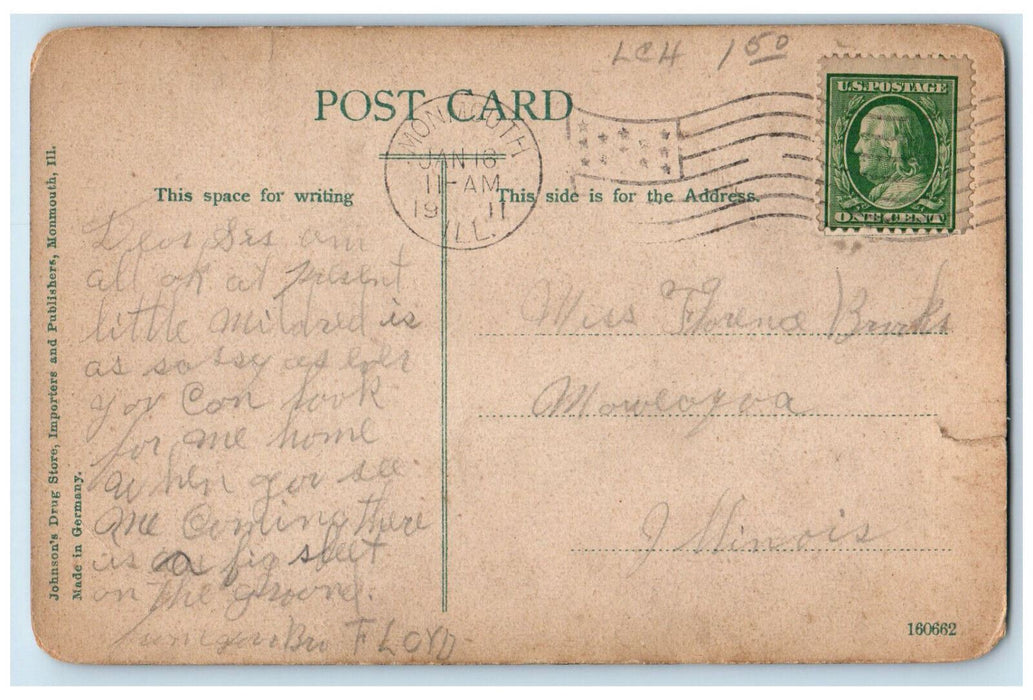 LCH 1 50
POST CARD
MONMOUTH
JAN 18
11-AM
19 11
ILL.
U.S. POSTAGE
ONE CENT
This space for writing
This side is for the Address.
Dear Sis am
all ok at present
little Mildred is
as sassy as ever
you can look
for me home
when you see
me coming there
is a big sleet
on the ground.
Bro FLOYD
Miss Florence Brooks
Moweaqua
Illinois
160662
Johnson's Drug Store, Importers and Publishers, Monmouth, Ill.
Made in Germany.